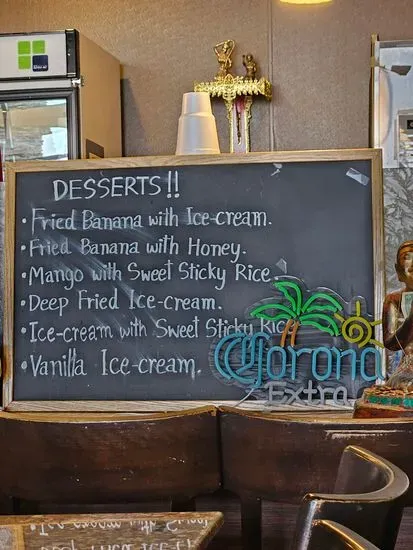 DESSERTS!!
• Fried Banana with Ice-cream.
• Fried Banana with Honey.
• Mango with Sweet Sticky Rice
• Deep Fried Ice-cream.
• Ice-cream with Sweet Sticky Rice
• Vanilla Ice-cream.
Corona
Extra